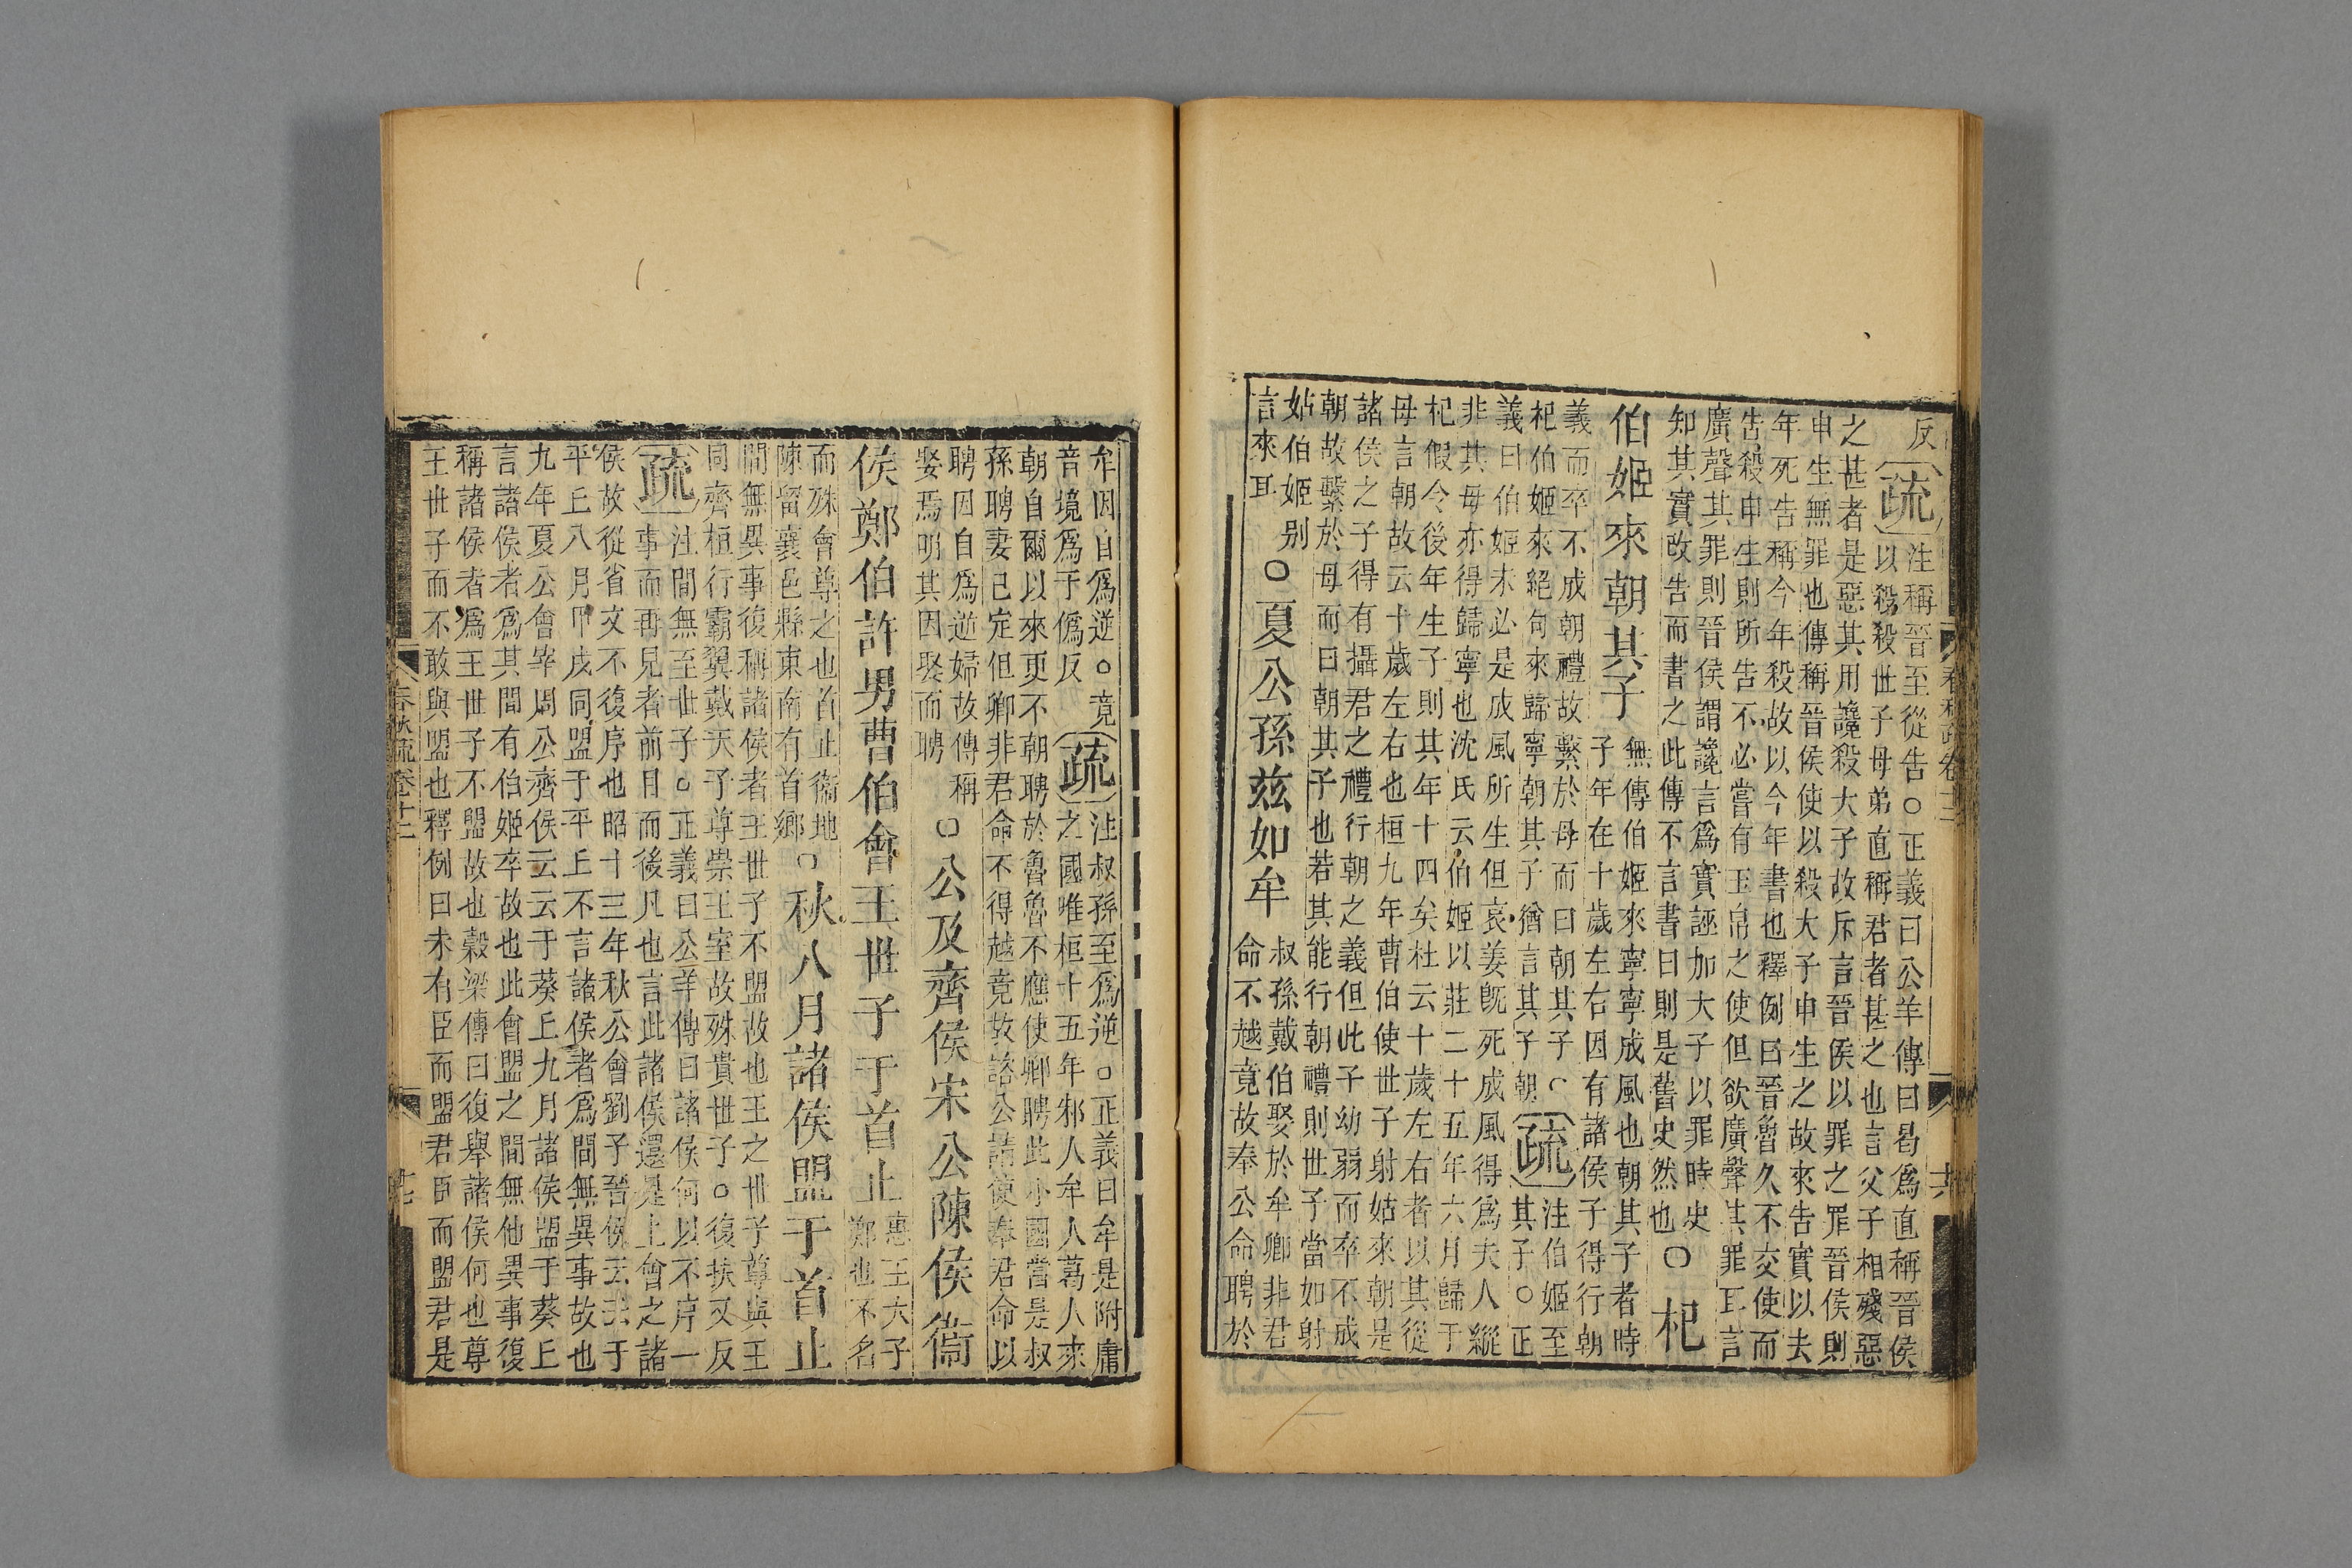 春秋疏卷十二 十六
反
疏
注稱晉至從告○正義曰公羊傳曰曷爲直稱晉侯
以殺殺世子母弟直稱君者甚之也言父子相殘惡
之甚者是惡其用讒殺大子故斥言晉侯以罪之罪晉侯則
申生無罪也傳稱晉侯使以殺大子申生之故來告實以去
年死告稱今年殺故以今年書也釋例曰晉魯久不交使而
告殺申生則所告不必嘗有玉帛之使但欲廣聲其罪耳言
廣聲其罪則晉侯謂讒言爲實誣加大子以罪時史
知其實改告而書之此傳不言書曰則是舊史然也
○杞
伯姬來朝其子
無傳伯姬來寧寧成風也朝其子者時
子年在十歲左右因有諸侯子得行朝
義而卒不成朝禮故繫於母而曰朝其子○
杞伯姬來絕句來歸寧朝其子猶言其子朝
疏
注伯姬至
其子○正
義曰伯姬未必是成風所生但哀姜既死成風得爲夫人縱
非其母亦得歸寧也沈氏云伯姬以莊二十五年六月歸于
杞假令後年生子則其年十四矣杜云十歲左右者以其從
母言朝故云十歲左右也桓九年曹伯使世子射姑來朝是
諸侯之子得有攝君之禮行朝之義但此子幼弱而卒不成
朝故繫於母而曰朝其子也若其能行朝禮則世子當如射
姑伯姬别
言來耳
○夏公孫兹如牟
叔孫戴伯娶於牟卿非君
命不越竟故奉公命聘於
牟因自爲逆○竟
音境爲于僞反
疏
注叔孫至爲逆○正義曰牟是附庸
之國唯桓十五年邾人牟人葛人來
朝自爾以來更不朝聘於魯魯不應使卿聘此小國當是叔
孫聘妻已定但卿非君命不得越竟故諮公請使奉君命以
聘因自爲逆婦故傳稱
娶焉明其因娶而聘
○公及齊侯宋公陳侯衞
侯鄭伯許男曹伯會王世子于首止
惠王大子
鄭也不名
而殊會尊之也首止衞地
陳留襄邑縣東南有首鄉
○秋八月諸侯盟于首止
間無異事復稱諸侯者王世子不盟故也王之世子尊與王
同齊桓行霸翼戴天子尊崇王室故殊貴世子○復扶又反
疏
注間無至世子○正義曰公羊傳曰諸侯何以不序一
事而再見者前目而後凡也言此諸侯還是上會之諸
侯故從省文不復序也昭十三年秋公會劉子晉侯云云于
平丘八月甲戌同盟于平丘不言諸侯者爲間無異事故也
九年夏公會宰周公齊侯云云于葵丘九月諸侯盟于葵丘
言諸侯者爲其間有伯姬卒故也此會盟之間無他異事復
稱諸侯者爲王世子不盟故也穀梁傳曰復舉諸侯何也尊
王世子而不敢與盟也釋例曰未有臣而盟君臣而盟君是
春秋疏卷十二 十七